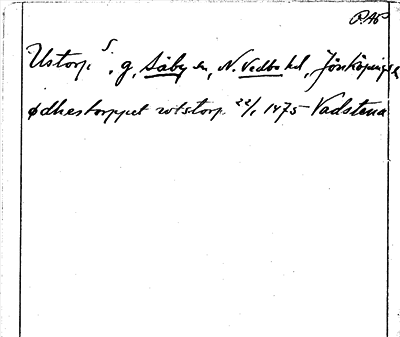 Ustorp S. g, Säby sn, N. Vedbo hd, Jönköpings
ødhestorppet vtstorp 22/1 1475 Vadstena